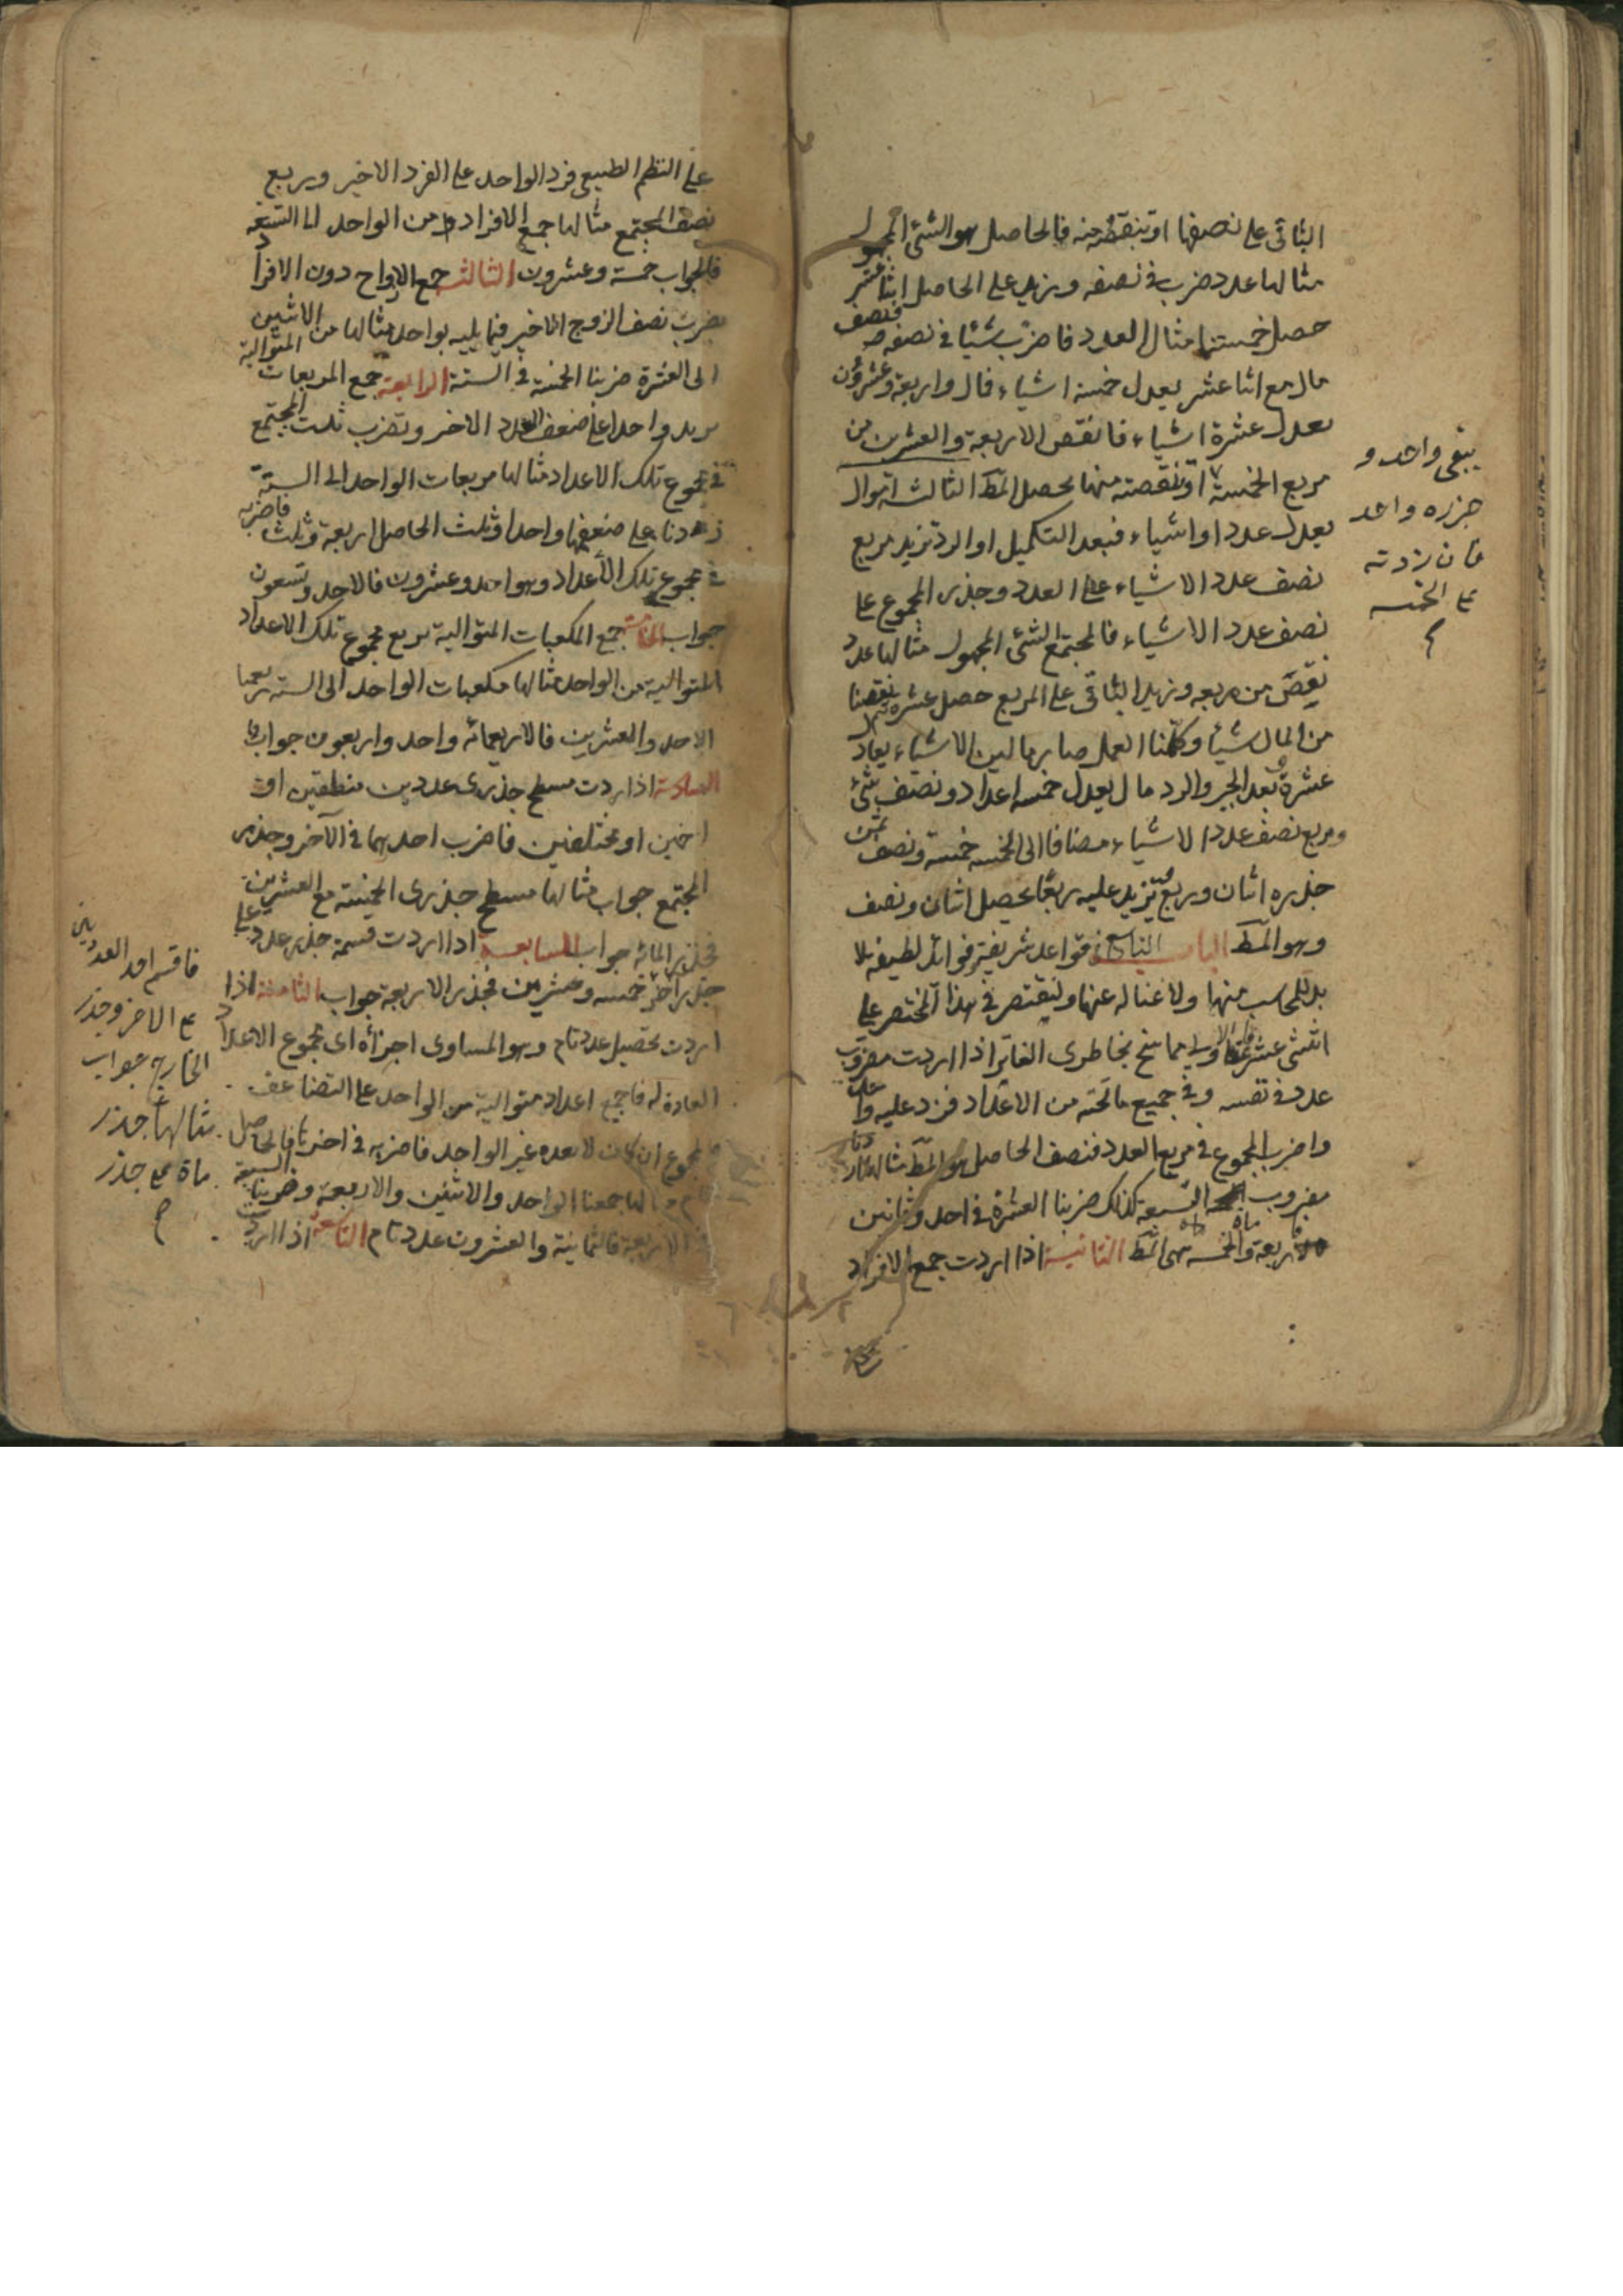 الباقى على نصفها او تنقصه منه فالحاصل هو الشئ المجهول
مثالها عدد ضرب فى نصفه وزيد على الحاصل اثنا عشر
حصل خمسة امثال العدد فاضرب شيئا فى نصفه فنصف
مال مع اثنا عشر يعدل خمسة اشياء فمال واربعة وعشرون
يعدل عشرة اشياء فانقص الاربعة والعشرين من
مربع الخمسة
يبقى واحد و
جزره واحد
فان زدته
على الخمسة
او نقصته منها يحصل المط الثالثة اموال
يعدل عددا واشياء فبعد التكميل او الرد تزيد مربع
نصف عدد الاشياء على العدد وجذر المجموع على
نصف عدد الاشياء فالمجتمع الشئ المجهول مثالها عدد
نقص من مربعه وزيد الباقى على المربع حصل عشرة نقصنا
من المال شيئا وكملنا العمل صار مالين الا شياء يعادل
عشرة وبعد الجبر والرد مال يعدل خمسه اعداد ونصف شئ
ومربع نصف عدد الاشياء مضافا الى الخمسه خمسة ونصف ثمن
جذره اثنان وربع تزيد عليه ربعا يحصل اثنان ونصف
وهو المط الباب التاسع فى قواعد شريفة وفوائد لطيفه لا
بد للحاسب منها ولا غنا له عنها ولنقتصر فى هذا المختصر على
اثنتى عشرة الاولى مما سنح بخاطرى الفاتر اذا اردت مضروب
عدد فى نفسه وفى جميع ما تحته من الاعداد فزد عليه واحدا
واضرب المجموع فى مربع العدد فنصف الحاصل هو المط مثالها اردنا
مضروب التسعة كذلك ضربنا العشرة فى احد وثمانين
فالاربعماة والخمسة هى المط الثانية اذا اردت جمع الافراد
على النظم الطبيعى فزد الواحد على الفرد الاخير وربع
نصف المجتمع مثالها جمع الافراد من الواحد الى التسعة
فالجواب خمسة وعشرون الثالثة جمع الازواج دون الافراد
بضرب نصف الزوج الاخير فيما يليه بواحد مثالها من الاثنين
الى العشرة ضربنا الخمسة فى الستة الرابعة جمع المربعات المتوالية
يزيد واحدا على ضعف العدد الاخر وتضرب ثلث المجتمع
فى مجموع تلك الاعداد مثالها مربعات الواحد الى الستة
زدنا على ضعفها واحدا وثلث الحاصل اربعة وثلث فاضربه
فى مجموع تلك الاعداد وهو احد وعشرون فالاحد وتسعون
جواب الخامسة جمع المكعبات المتوالية مربع مجموع تلك الاعداد
المتوالية من الواحد مثالها مكعبات الواحد الى الستة ربعنا
الاحد والعشرين فالاربعمائه واحد واربعون جواب
السادسة اذا اردت مسطح جذرى عددين منطقين او
اصمين او مختلفين فاضرب احدهما فى الآخر وجذر
المجتمع جواب مثالها مسطح جذرى الخمسة مع العشرين
فجذر المائه جواب السابعة اذا اردت قسمة جذر عدد على
جذر آخر
فاقسم احد العددين
على الاخر وجذر
الخارج جواب
مثالها جذر
ماة على جذر
خمسه وعشرين فجذر الاربعة جواب الثامنة اذا
اردت تحصيل عدد تام وهو المساوى اجزأه اى مجموع الاعداد
العادة له فاجمع اعداد متوالية من الواحد على التضاعف
فالمجموع ان كان لا يعده غير الواحد فاضربه فى اخرها فالحاصل
تام مثالها جمعنا الواحد والاثنين والاربعة وضربنا السبعة
فى الاربعة فالثمانية والعشرون عدد تام التاسعة اذا اردت